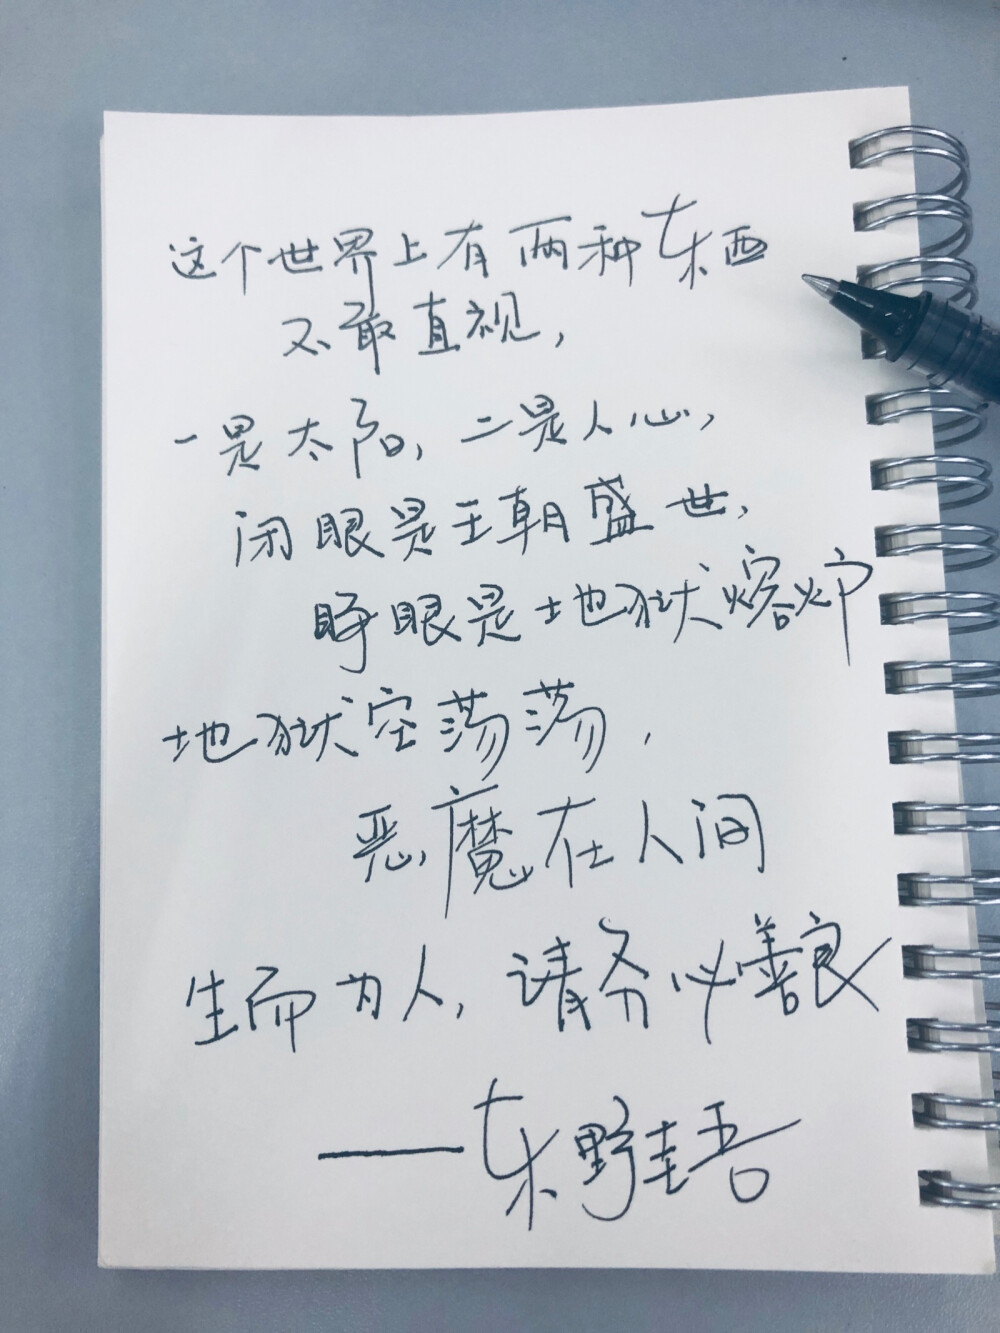 这个世界上有两种东西
不敢直视，
一是太阳，二是人心，
闭眼是王朝盛世，
睁眼是地狱熔炉
地狱空荡荡，
恶魔在人间
生而为人，请务必善良
——东野圭吾